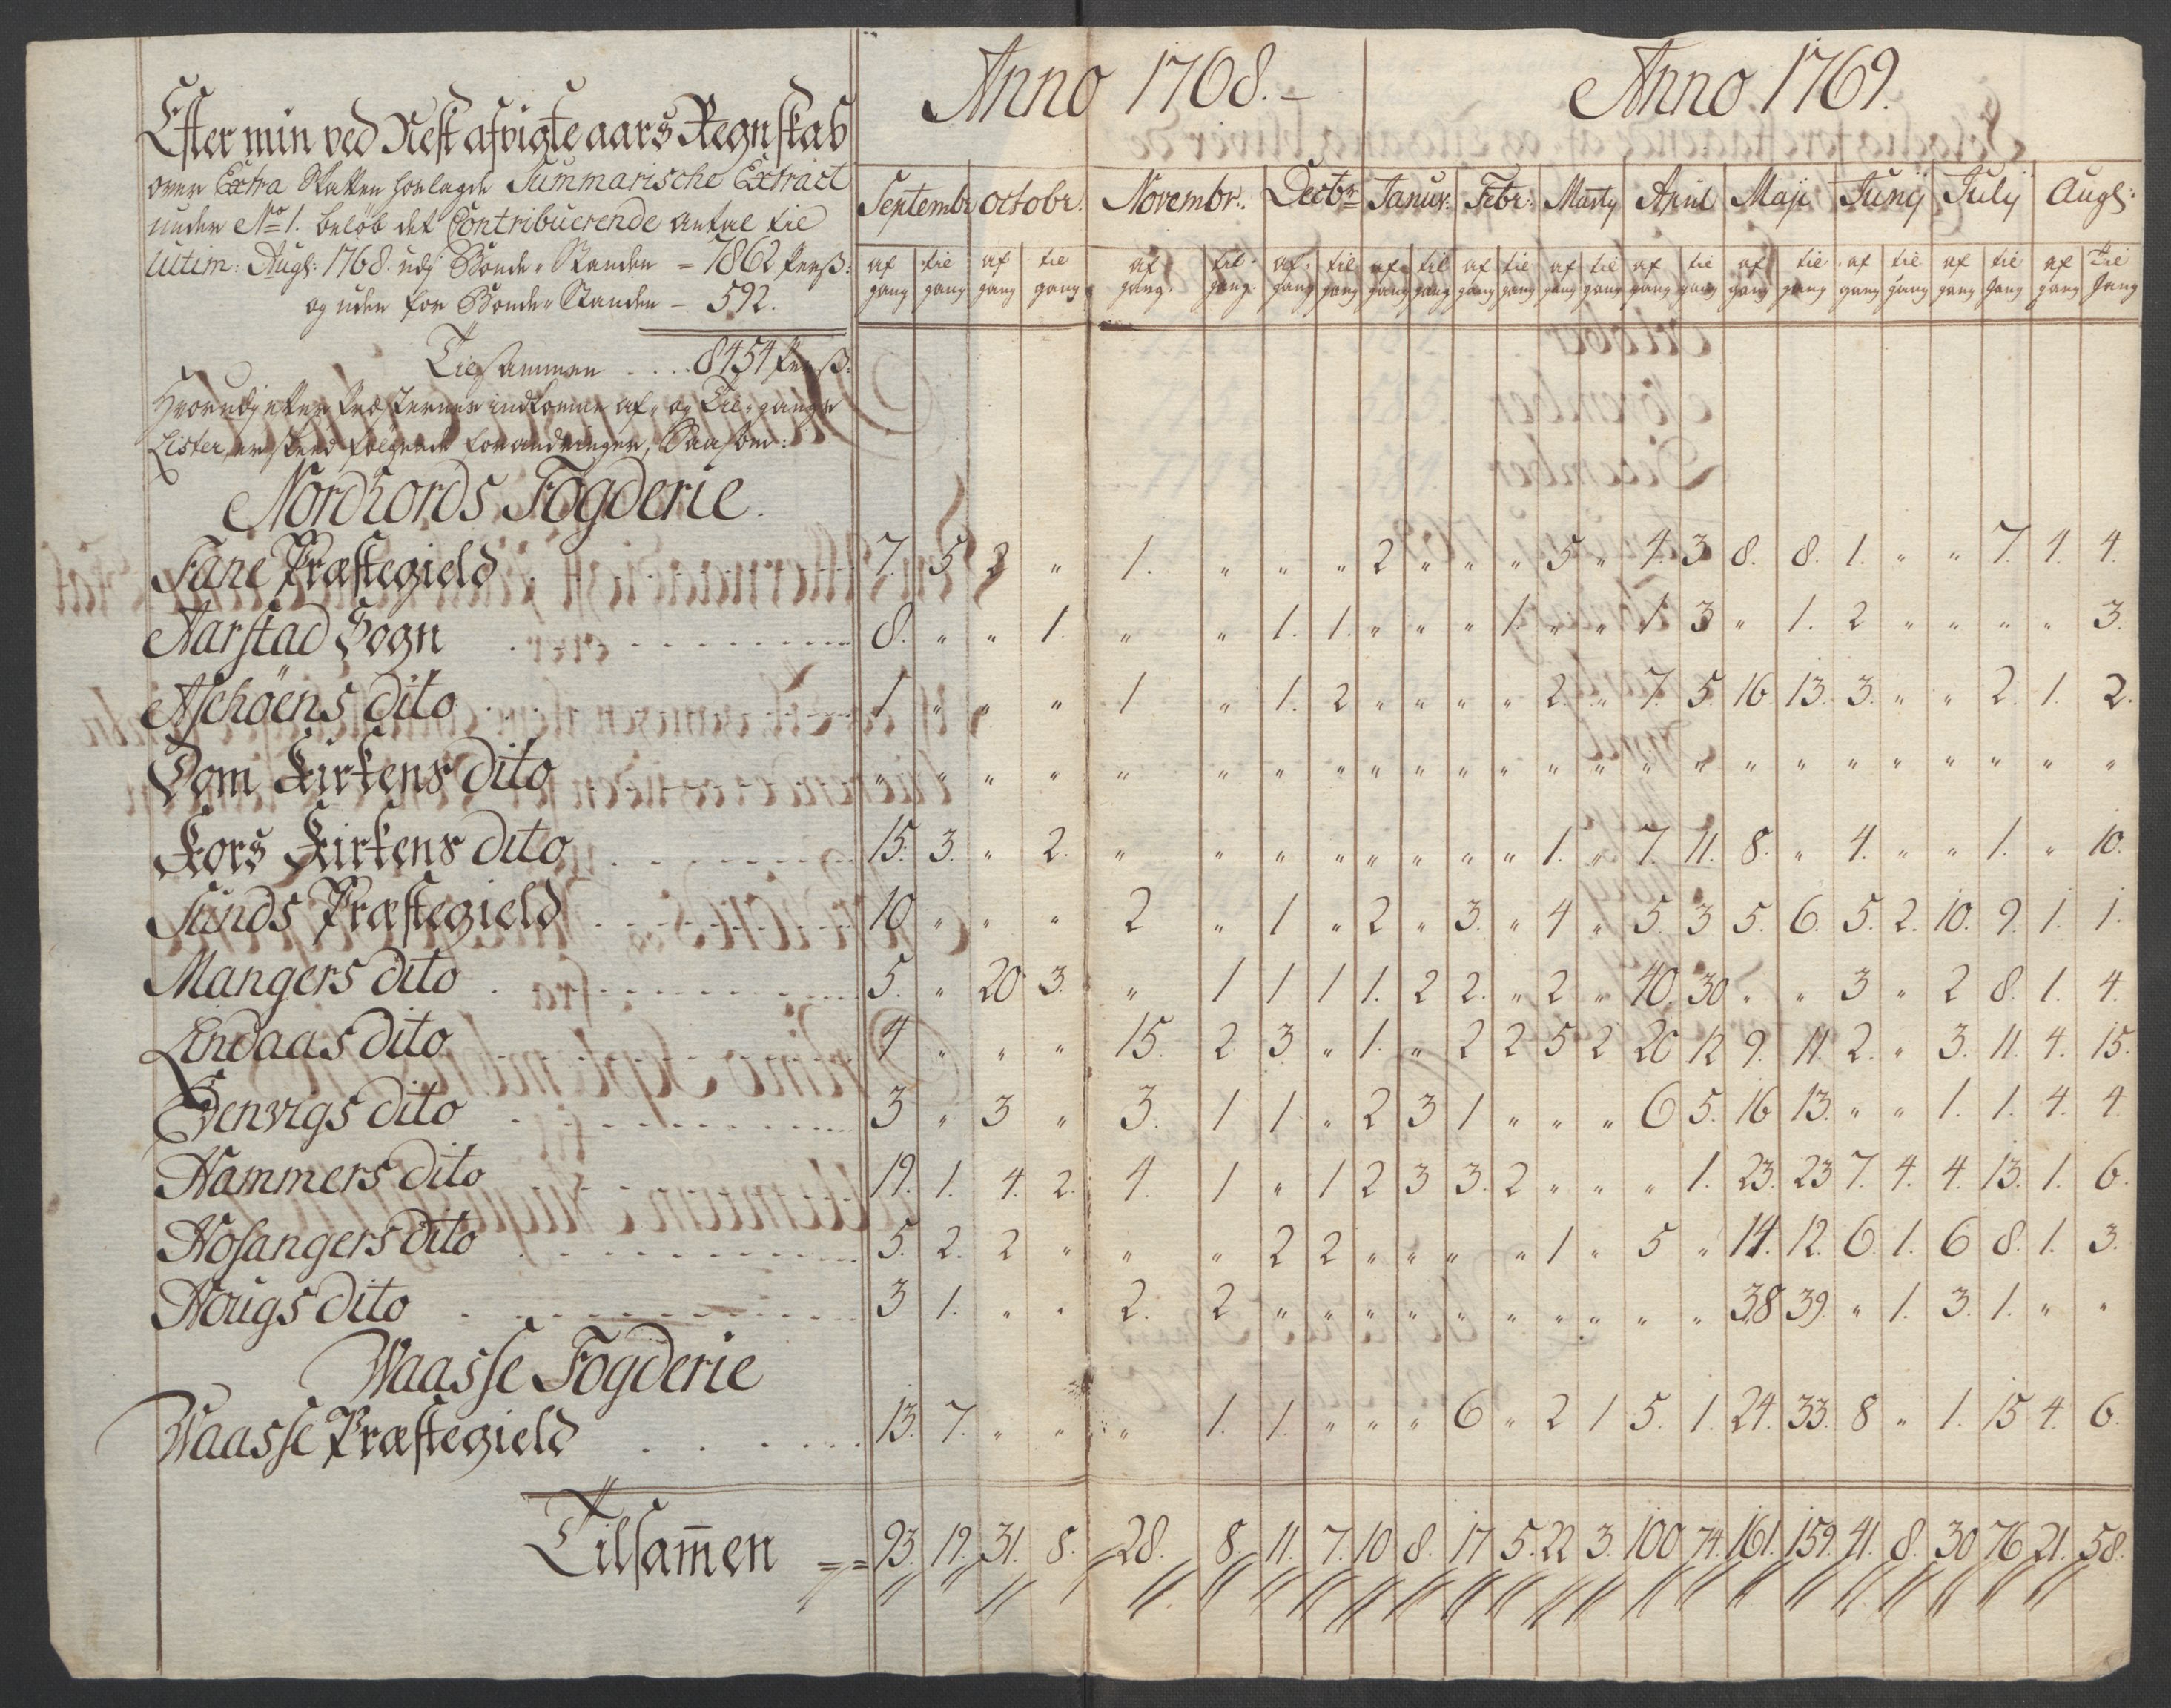 Anno 1768.
Anno 1769.
Efter min ved Nest afvigte aars Regnskab
over Extra Skatten forlagde Summarische Extract
under No 1. beløb det Contribuerende Antal til
Ultim: Augs: 1768. udj Bonde-Standen - 7862 Perß:
og uden for Bonde-Standen - 592.
Tilsammen .... 8454 Perß:
Hvorudj efter Præsternes indkomne af- og Til-gangs
Lister, er skeed følgende forandringer, Saasom:
Septembr octobr. Novembr. Decbr Januv: Febr: Marty April Maji Junij Julij Augs:
af gang til gang af gang til gang af gang. til gang. af gang til gang af gang til gang af gang til gang af gang til gang af gang til gang af gang til gang af gang til gang af gang til gang af gang til gang
Nordhords Fogderie.
Fane Præstegield 7. 5 2 " 1. " " " 2 " " " 5 " 4. 3 8. 8. 1. " " 7. 4. 4.
Aarstad Sogn 8. " " 1. " " 1. 1. " " " 1. " " 1 3 " 1. 2 " " " " 3.
Aschøens dito 1 " " " 1 " 1. 2 " " " " 2. " 7. 5. 16. 13. 3. " " 2. 1. 2.
Dom Kirkens dito " " " " " " " " " " " " " " " " " " " " " " " "
Kors Kirkens dito 15. 3. " 2. " " " " " " " " 1. " 7. 11. 8. " 4. " " 1. " 10.
Sunds Præstegield 10 " " " 2 " 1 " 2 " 3. " 4 " 5. 3 5. 6. 5. 2. 10. 9. 1. 1.
Mangers dito 5. " 20 3. " 1 1 1 1. 2 2. " 2 " 40. 30 " " 3 " 2 8. 1. 4.
Lindaas dito 4 " " " 15. 2 3 " 1. " 2 2 5 2 20 12 9. 11. 2. " 3. 11. 4. 15.
Evenvigs dito 3 " 3 " 3. 1 1 " 2 3 1 " " " 6 5. 16 13. " " 1. 1. 4. 4.
Hammers dito 19. 1. 4. 2. 4. 1 " 1 2 3 3. 2 " " " 1. 23. 23 7. 4. 4. 13. 1. 6.
Hosangers dito 5. 2. 2 " " " 2 2 " " " " 1 " 5 " 14. 12. 6. 1. 6 8. 1. 3.
Hougs dito 3 1. " " 2. 2 " " " " " " " " " " 38 39. " 1. 3. 1. " "
Waasse Fogderie
Waasse Præstegield 13. 7. " " " 1. 1. " " " 6 " 2 1 5. 1. 24. 33. 8 " 1. 15 4. 6.
Tilsam̄en 93. 19. 31. 8. 28. 8. 11. 7. 10 8. 17 5. 22 3. 100 74. 161. 159. 41. 8. 30 76 21. 58.